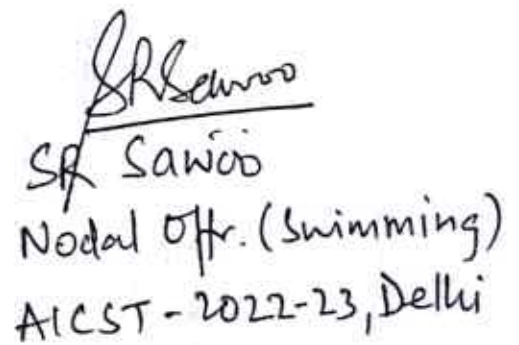 SRSawoo
SR Sawoo
Nodal Offr. (Swimming)
AICST - 2022-23, Delhi